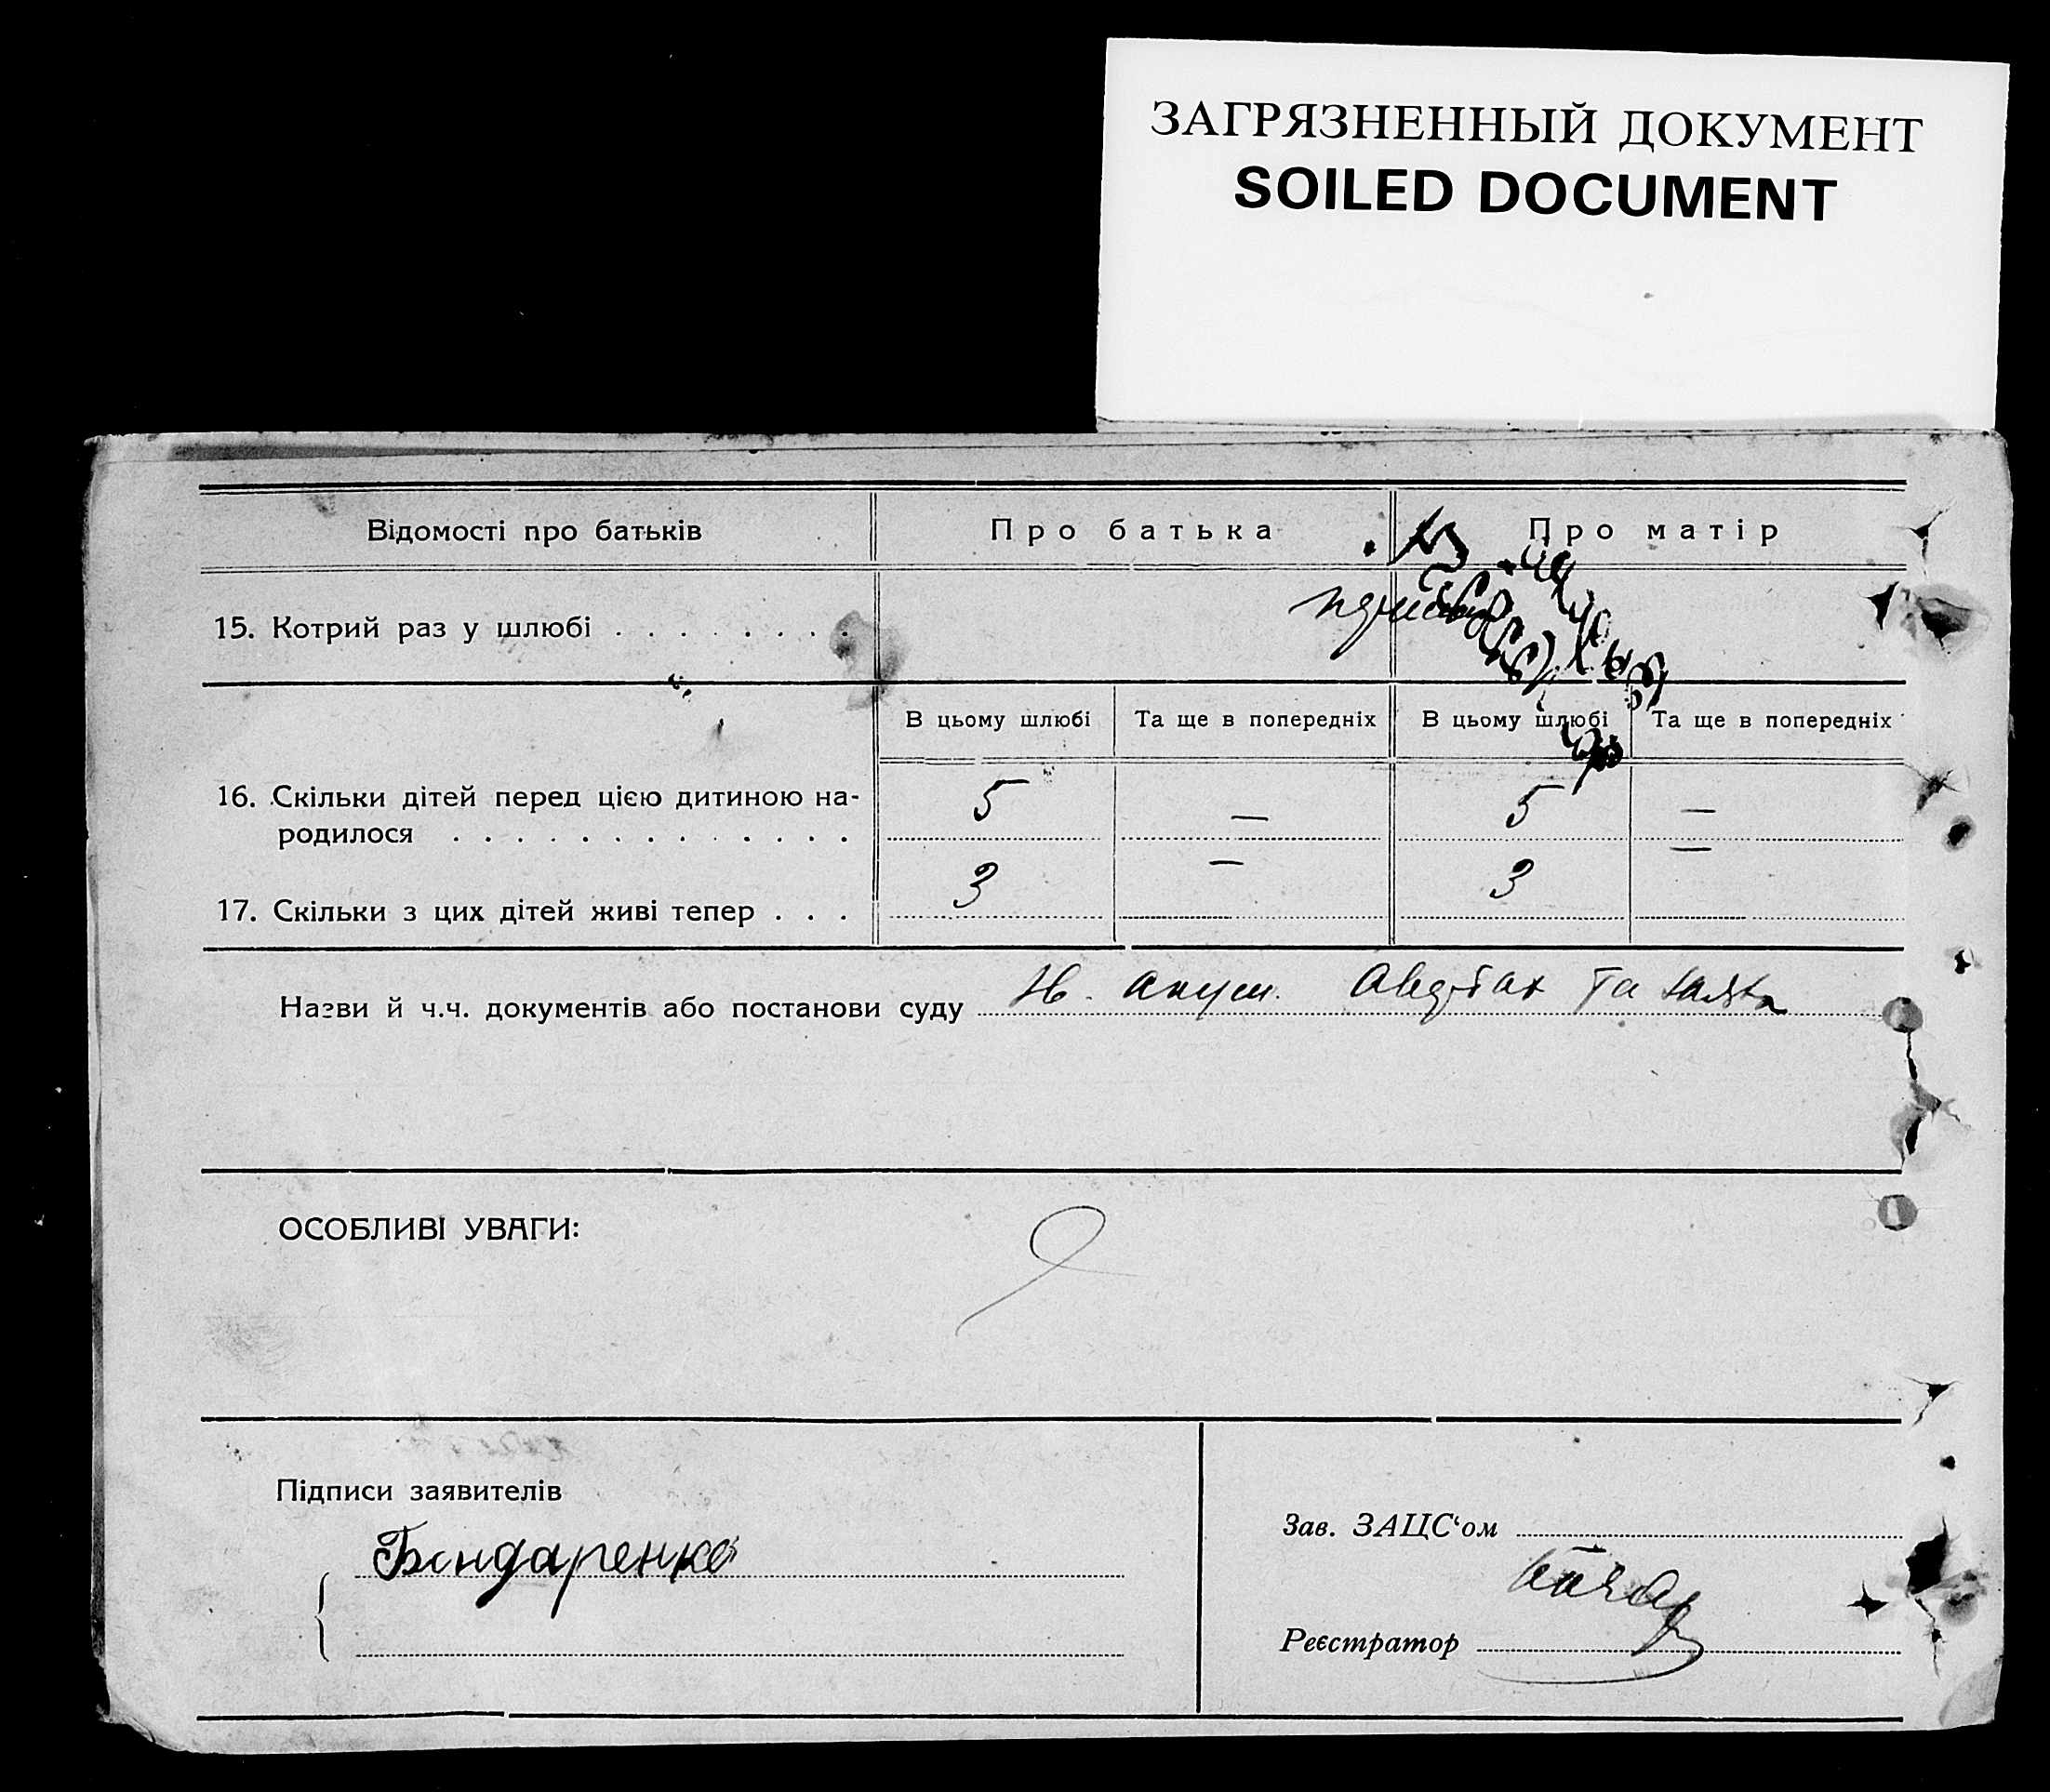 ЗАГРЯЗНЕННЫЙ ДОКУМЕНТ
SOILED DOCUMENT
Відомості про батьків
Про батька
Про матір
15. Котрий раз у шлюбі . . . . . . . .
В цьому шлюбі
Та ще в попередніх
В цьому шлюбі
Та ще в попередніх
16. Скільки дітей перед цією дитиною на-
родилося . . . . . . . . . . . . . 5 — 5 —
17. Скільки з цих дітей живі тепер . . . 3 — 3 —
Назви й ч.ч. документів або постанови суду
ОСОБЛИВІ УВАГИ:
Підписи заявителів
Бондаренко
Зав. ЗАЦС‘ом
Реєстратор